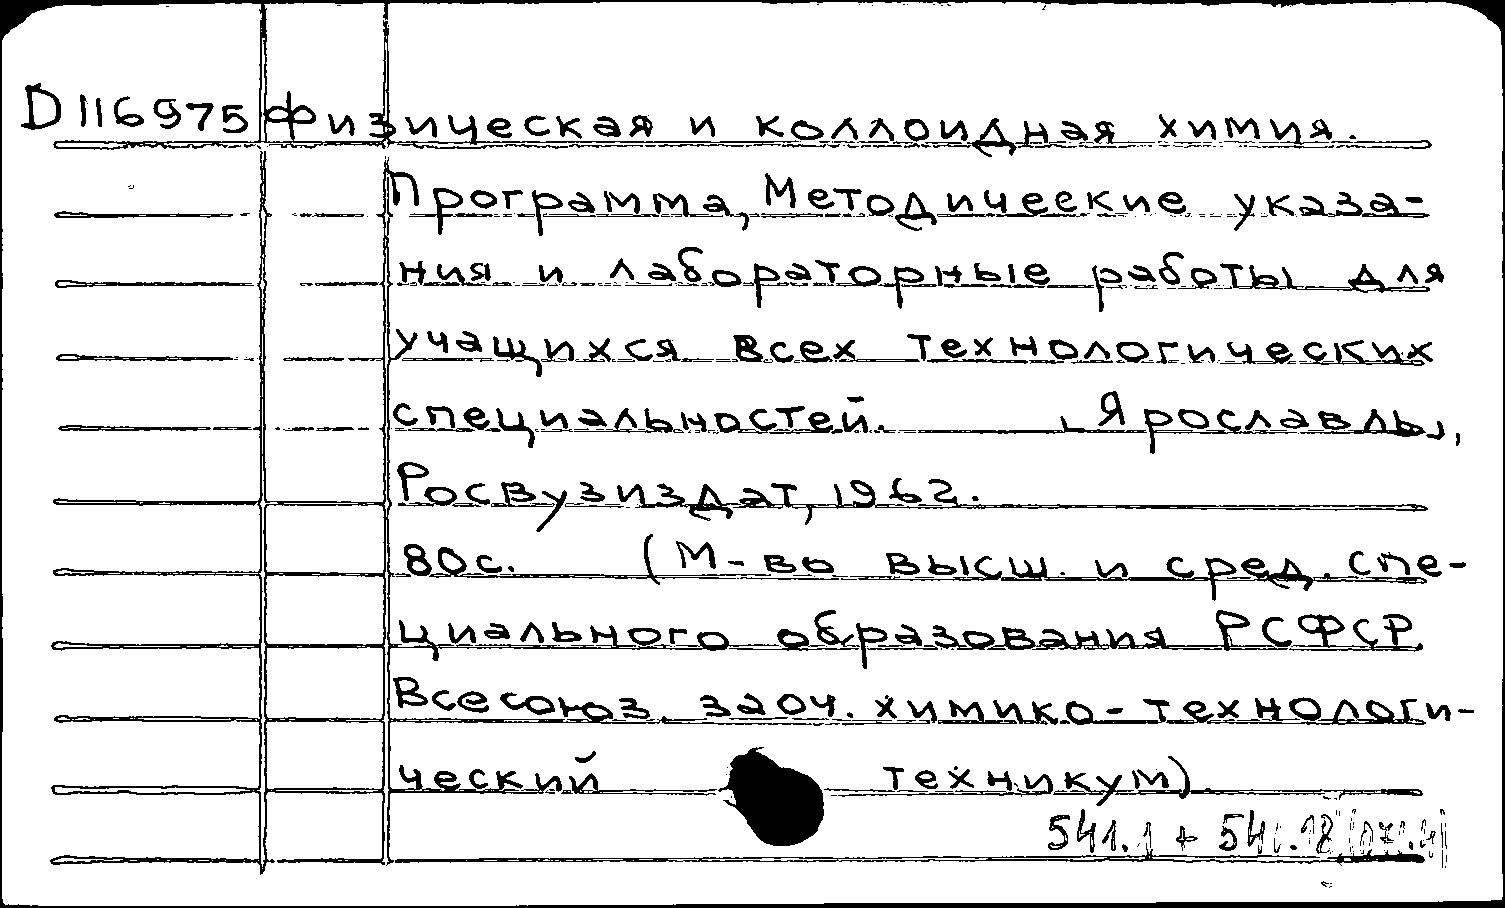 D 116975 Физическая и коллоидная химия.
Программа, Методические указа-
ния и лабораторные работы для
учащихся всех технологических
специальностей. [Ярославль],
Росвузиздат, 1962.
80с. (М-во высш. и сред. спе-
циального образования РСФСР.
Всесоюз. заоч. химико-технологи-
ческий техникум).
541.1 + 541.18 (071.4)